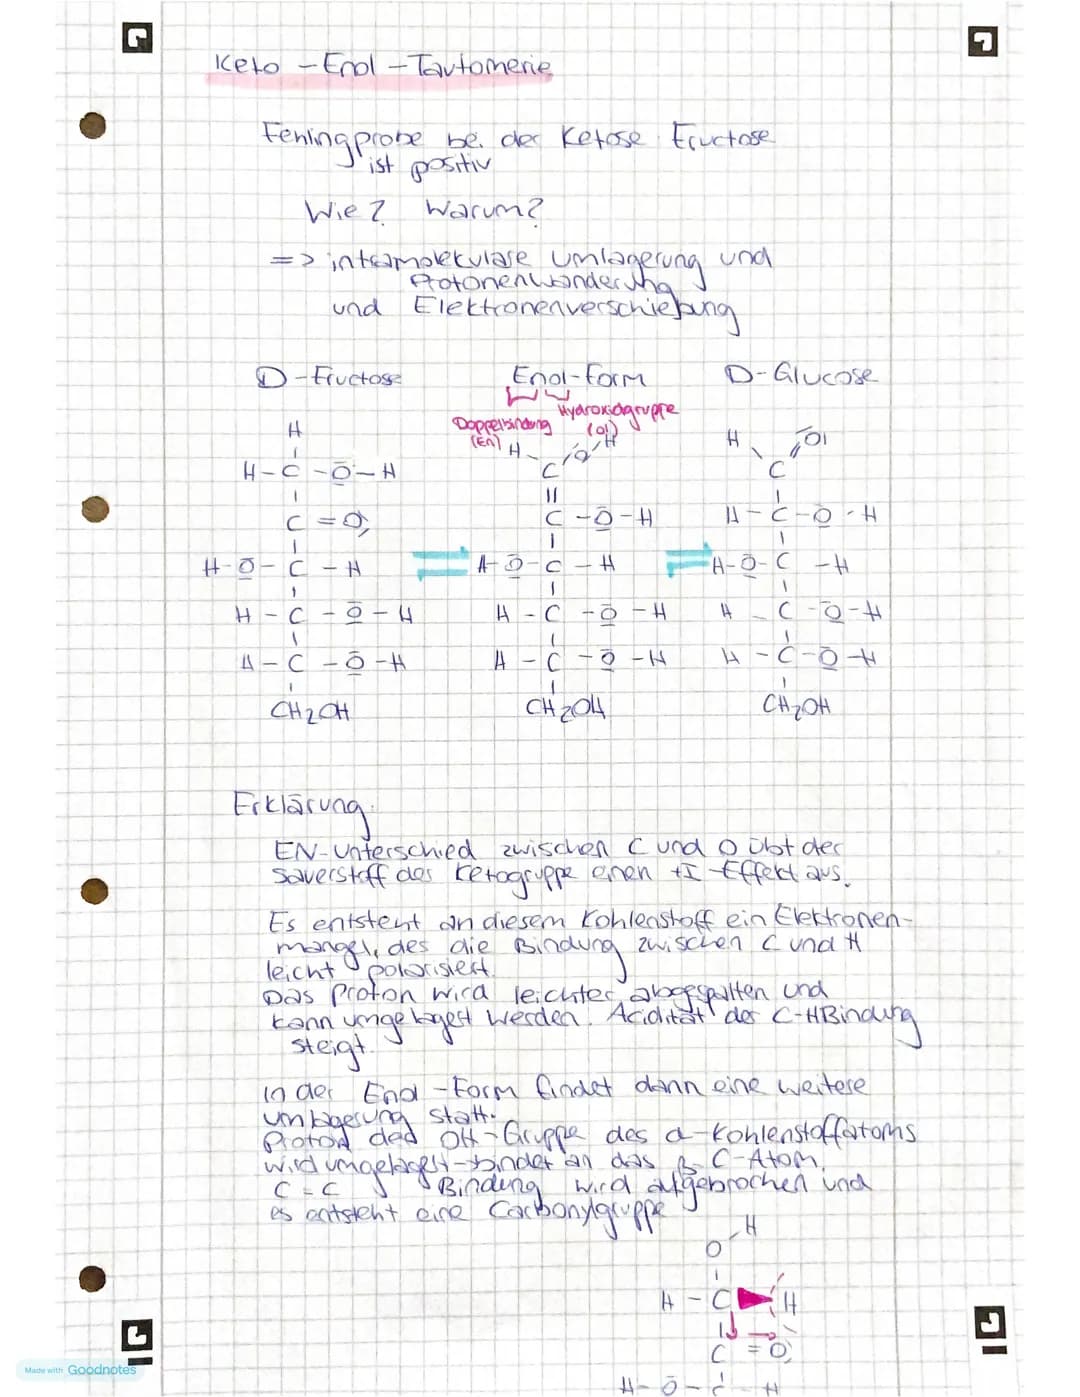 Keto-Enol-Tautomerie
Fehlingprobe bei der Ketose Fructose
ist positiv
Wie? Warum?
=> intramolekulare Umlagerung und
Protonenwanderung
und Elektronenverschiebung
D-Fructose Enol-Form D-Glucose
Doppelbindung Hydroxidgruppe
(En) (ol)
H H H H O
H-C-O-H C O C
C=O C-O-H H-C-O-H
H-O-C-H ⇌ H-O-C-H ⇌ H-O-C-H
H-C-O-H H-C-O-H H-C-O-H
H-C-O-H H-C-O-H H-C-O-H
CH2OH CH2OH CH2OH
Erklärung:
EN-Unterschied zwischen C und O übt der
Sauerstoff der Ketogruppe einen +I-Effekt aus.
Es entsteht an diesem Kohlenstoff ein Elektronen-
mangel, des die Bindung zwischen C und H
leicht polarisiert.
Das Proton wird leichter abgespalten und
kann umgelagert werden. Acidität der C-H Bindung
steigt.
in der Enol-Form findet dann eine weitere
Umlagerung statt.
Proton der OH-Gruppe des α-Kohlenstoffatoms
wird umgelagert → bindet an das β C-Atom.
C=C Bindung wird aufgebrochen und
es entsteht eine Carbonylgruppe
H
O
H-C H
C=O
H-O-C-H
Made with Goodnotes